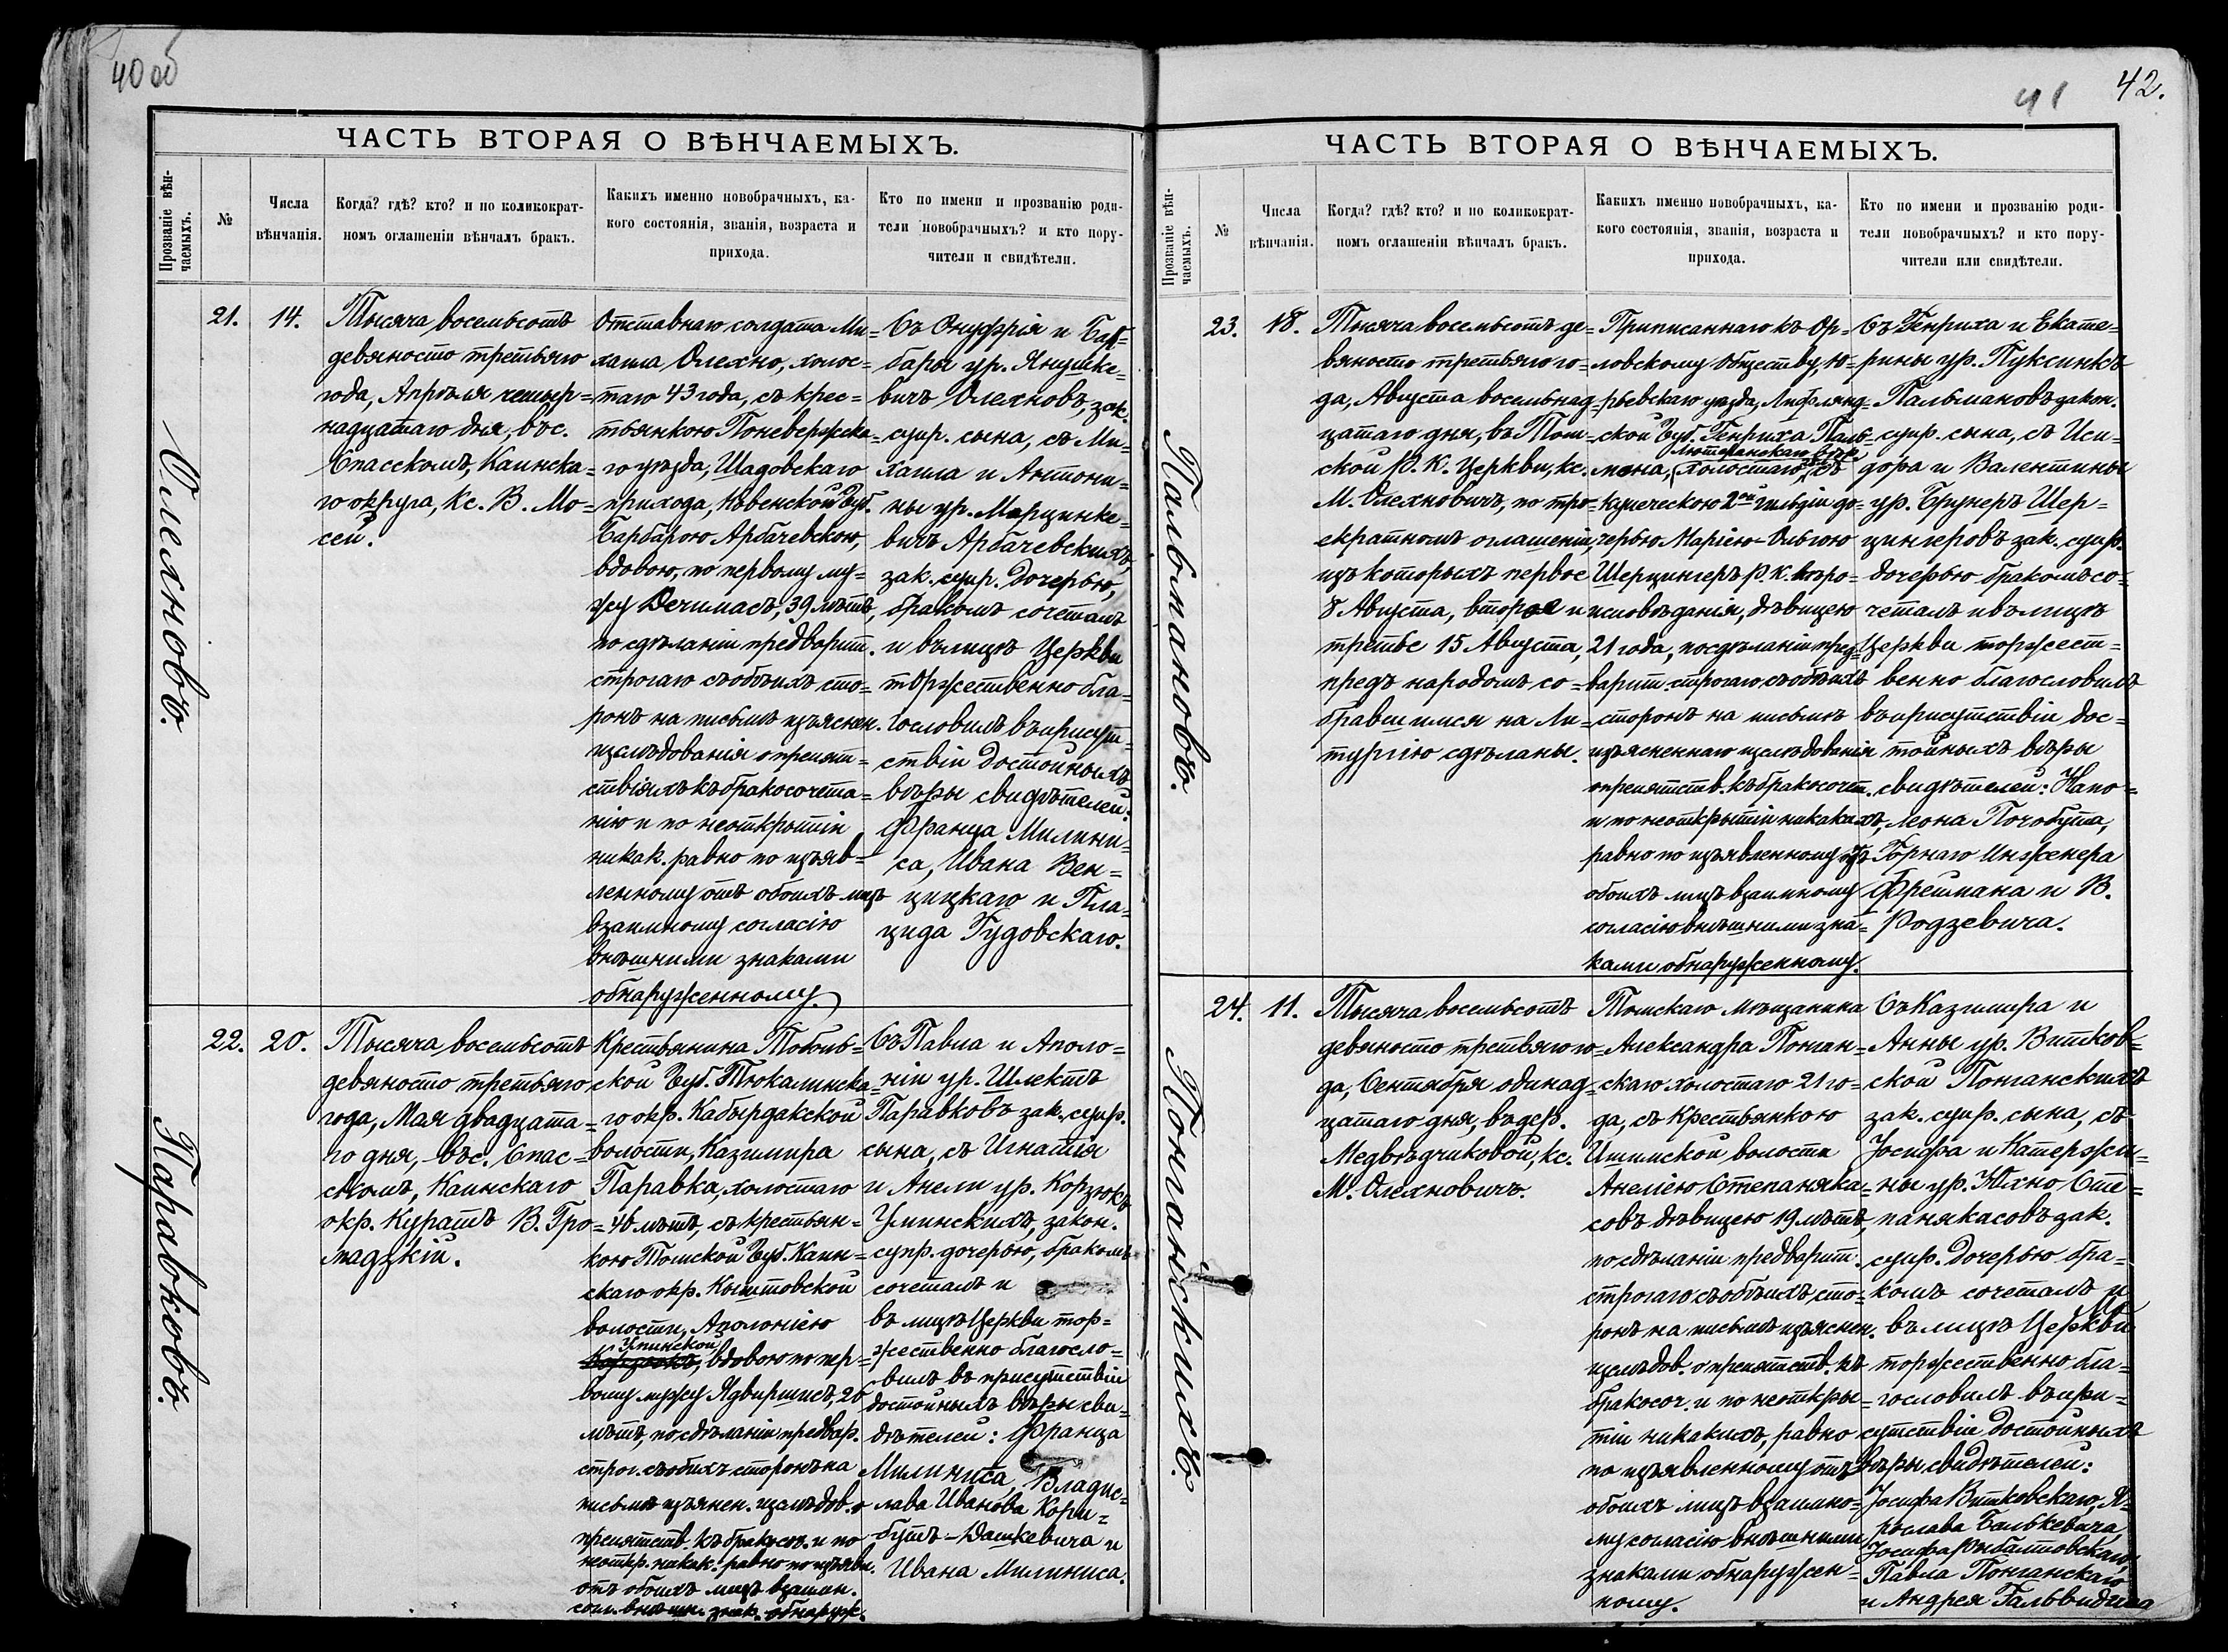 40 об
ЧАСТЬ ВТОРАЯ О ВѢНЧАЕМЫХЪ.
Прозваніе вѣн-
чаемыхъ.
№
Числа
вѣнчанія.
Когда? гдѣ? кто? и по коликократ-
номъ оглашеніи вѣнчалъ бракъ.
Какихъ именно новобрачныхъ, ка-
кого состоянія, званія, возраста и
прихода.
Кто по имени и прозванію роди-
тели новобрачныхъ? и кто пору-
чители и свидѣтели.
Олехновъ.
21.
14.
Тысяча восемьсотъ
девяносто третьяго
года, Апрѣля четыр=
надцатаго дня, въ с.
Спасскомъ, Каинска=
го округа, Кс. В. Мо=
сей.
Отставнаго солдата Ми=
хаила Олехно, холос=
таго 43 года, съ крес=
тьянкою Поневѣжска=
го уѣзда, Шадовскаго
прихода, Ковенской Губ.
Барбарою Арбачевскою,
вдовою, по первому му=
жу Вечимасъ, 39 лѣтъ,
по сдѣланіи предварит.
строгаго съ обѣихъ сто=
ронъ на письмѣ изъяснен.
изслѣдованія о препят=
ствіяхъ къ бракосочета=
нію и по неоткрытіи
никак. равно по изъяв=
ленному отъ обоихъ лицъ
взаимному согласію
внѣшними знаками
обнаруженному.
Съ Онуфрія и Бар=
бары ур. Янушке=
вичъ Олехновъ, зак.
супр. сына, съ Ми=
хаила и Антони=
ны ур. Марцинке=
вичъ Арбачевскихъ,
зак. супр. дочерью,
бракомъ сочеталъ
и въ лицѣ Церкви
торжественно бла=
гословилъ въ присут=
ствіи достойныхъ
вѣры свидѣтелей:
Франца Милини=
са, Ивана Вен=
цицкаго и Пла=
цида Гудовскаго.
Паравковъ.
22.
20.
Тысяча восемьсотъ
девяносто третьяго
года, Мая двадцата=
го дня, въ с. Спас=
скомъ, Каинскаго
окр. Куратъ В. Гро=
мадзкій.
Крестьянина Тоболь=
ской Губ. Тюкалинска=
го окр. Кабырдакской
волости, Казимира
Паравка, холостаго
46 лѣтъ, съ крестьян=
кою Томской Губ. Каин=
скаго окр. Кыштовской
волости, Аполоніею
вдовою по пер=
вому мужу Ядвиршисъ, 26
лѣтъ, по сдѣланіи предвар.
строг. съ обѣихъ сторонъ на
письмѣ изъяснен. изслѣдов. о
препятств. къ бракосоч. и по
неоткр. никак. равно по изъявл.
отъ обоихъ лицъ взаимн.
согл. внѣшн. знак. обнаруж.
Съ Павла и Аполо=
ніи ур. Шлектъ
Паравковъ зак. супр.
сына, съ Игнатія
и Анели ур. Корзюкъ
законн.
супр. дочерью, бракомъ
сочеталъ и
въ лицѣ Церкви тор=
жественно благосло=
вилъ въ присутствіи
достойныхъ вѣры сви=
дѣтелей: Франца
Милиниса, Владис=
лава Иванова Кори=
бутъ-Дашкевича и
Ивана Милиниса.
41
42.
ЧАСТЬ ВТОРАЯ О ВѢНЧАЕМЫХЪ.
Прозваніе вѣн-
чаемыхъ.
№
Числа
вѣнчанія.
Когда? гдѣ? кто? и по коликократ-
номъ оглашеніи вѣнчалъ бракъ.
Какихъ именно новобрачныхъ, ка-
кого состоянія, званія, возраста и
прихода.
Кто по имени и прозванію роди-
тели новобрачныхъ? и кто пору-
чители или свидѣтели.
Пальмановъ.
23.
18.
Тысяча восемьсотъ де=
вяносто третьяго го=
да, Августа восемьнад=
цатаго дня, въ Том=
ской Р. К. Церкви, кс.
М. Олехновичъ, по тро=
екратномъ оглашеніи,
изъ которыхъ первое
8 Августа, второе и
третье 15 Августа,
предъ народомъ со=
бравшимся на Ли=
тургію сдѣланы.
Приписаннаго къ Ор=
ловскому обществу Ю=
рьевскаго уѣзда, Лифлянд=
ской Губ. Генриха Паль=
Лютеранскаго вѣр.
мана, холостаго, съ
купеческою 2ой гильдіи до=
черью Маріею-Ольгою
Шерцингеръ Р. К. вѣро=
исповѣданія, дѣвицею
21 года, по сдѣланіи пред=
варит. строгаго съ обѣихъ
сторонъ на письмѣ
изъясненнаго изслѣдованія
о препятств. къ бракосочет.
и по неоткрытіи никакихъ,
равно по изъявленному отъ
обоихъ лицъ взаимному
согласію внѣшними зна=
ками обнаруженному.
Съ Генриха и Екате=
рины ур. Пуксинкъ
Пальмановъ закон.
супр. сына, съ Иси=
дора и Валентины
ур. Брунеръ Шер=
цингеровъ зак. супр.
дочерью бракомъ со=
четалъ и въ лицѣ
Церкви торжест=
венно благословилъ
въ присутствіи дос=
тойныхъ вѣры
свидѣтелей: Напо=
леона Почобута,
Горнаго Инженера
Фреймана и В.
Родзевича.
Понганскихъ.
24.
11.
Тысяча восемьсотъ
девяносто третьяго го=
да, Сентября одинад=
цатаго дня, въ дер.
Медвѣдчиковой, кс.
М. Олехновичъ.
Томскаго мѣщанина
Александра Понган=
скаго холостаго 21 го=
да, съ Крестьянкою
Ишимской волости
Анеліею Степаняка=
совъ дѣвицею 19 лѣтъ,
по сдѣланіи предварит.
строгаго съ обѣихъ сто=
ронъ на письмѣ изъяснен.
изслѣдов. о препятств. къ
бракосоч. и по неоткры=
тіи никакихъ, равно
по изъявленному отъ
обоихъ лицъ взаимно=
му согласію внѣшними
знаками обнаружен=
ному.
Съ Казимира и
Анны ур. Витков=
ской Понганскихъ
зак. супр. сына, съ
Іосифа и Катержи=
ны ур. Юхно Сте=
панякасовъ зак.
супр. дочерью бра=
комъ сочеталъ и
въ лицѣ Церкви
торжественно бла=
гословилъ въ при=
сутствіи достойныхъ
вѣры свидѣтелей:
Іосифа Витковскаго, Я=
рослава Балькевича,
Іосифа
Павла Понганскаго
и Андрея